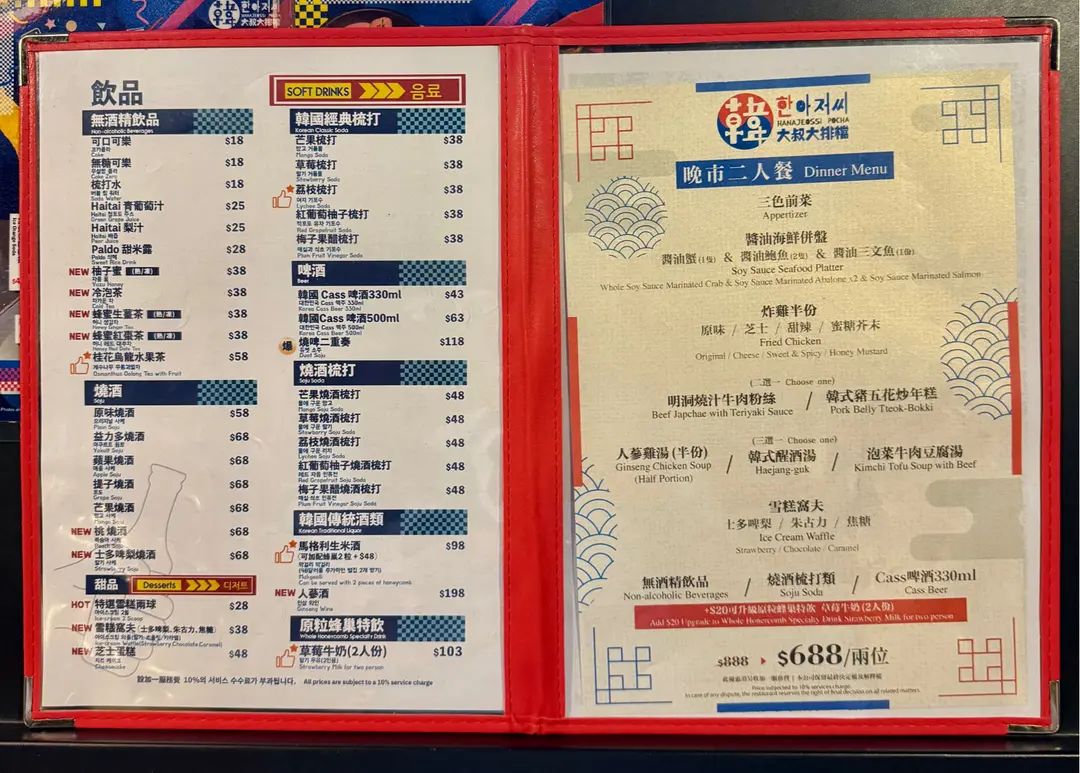 韓
HANAJEOSSI POCHA
大叔大排檔
飲品
SOFT DRINKS 음료
無酒精飲品
Non-alcoholic Beverages
可口可樂 $18
코카콜라
Coke
無糖可樂 $18
무설탕 콜라
Coke Zero
梳打水 $18
Soda Water
Haitai 青葡萄汁 $25
Green Grape Juice
Haitai 梨汁 $25
Pear Juice
Paldo 甜米露 $28
Paldo 식혜
Sweet Rice Drink
NEW 柚子蜜 (熱/凍) $38
Yuzu Honey
NEW 冷泡茶 $38
차가운 차
Cold Tea
NEW 蜂蜜生薑茶 (熱/凍) $38
허니 생강차
Honey Ginger Tea
NEW 蜂蜜紅棗茶 (熱/凍) $38
허니 레드 대추차
Honey Red Date Tea
桂花烏龍水果茶 $58
계수나무 우롱과일차
Osmanthus Oolong Tea with Fruit
燒酒
Soju
原味燒酒 $58
오리지널 사케
Plain Soju
益力多燒酒 $68
Yakult Soju
蘋果燒酒 $68
애플 사케
Apple Soju
提子燒酒 $68
포도
Grape Soju
芒果燒酒 $68
망고 사케
Mango Soju
NEW 桃 燒酒 $68
복숭아 사케
Peach Soju
NEW 士多啤梨燒酒 $68
딸기 사케
Strawberry Soju
甜品 Desserts 디저트
HOT 特選雪糕兩球 $28
아이스크림 2볼
Ice-cream 2 Scoop
NEW 雪糕窩夫 (士多啤梨、朱古力、焦糖) $38
Ice-cream Waffle(Strawberry,Chocolate,Caramel)
NEW 芝士蛋糕 $48
치즈 케이크
Cheesecake
韓國經典梳打
Korean Classic Soda
芒果梳打 $38
망고 거품물
Mango Soda
草莓梳打 $38
딸기 거품물
Strawberry Soda
荔枝梳打 $38
여지 기포수
Lychee Soda
紅葡萄柚子梳打 $38
적포도 유자 기포수
Red Grapefruit Soda
梅子果醋梳打 $38
매실과 식초 기포수
Plum Fruit Vinegar Soda
啤酒
Beer
韓國 Cass 啤酒330ml $43
대한민국 Cass 맥주 330ml
Korea Cass Beer 330ml
韓國Cass 啤酒500ml $63
대한민국 Cass 맥주 500ml
Korea Cass Beer 500ml
爆 燒啤二重奏 $118
Duet Soju
燒酒梳打
Soju Soda
芒果燒酒梳打 $48
불에 구운 망고
Mango Soju Soda
草莓燒酒梳打 $48
불에 구운 딸기
Strawberry Soju Soda
荔枝燒酒梳打 $48
불에 구운 리치
Lychee Soju Soda
紅葡萄柚子燒酒梳打 $48
레드 자몽 민듀런
Red Grapefruit Soju Soda
梅子果醋燒酒梳打 $48
매실 식초 민듀런
Plum Fruit Vinegar Soju Soda
韓國傳統酒類
Korean Traditional Liquor
馬格利生米酒 $98
(可加配蜂巢2 粒 + $48)
막걸리 막걸리
(48달러를 추가하면 벌집 2개 받기)
Makgeolli
Can be served with 2 pieces of honeycomb
NEW 人蔘酒 $198
인삼 와인
Ginseng Wine
原粒蜂巢特飲
Whole Honeycomb Specialty Drink
草莓牛奶(2人份) $103
딸기 우유(2인용)
Strawberry Milk for two person
設加一服務費 10%의 서비스 수수료가 부과됩니다. All prices are subject to a 10% service charge
韓 한아저씨
HANAJEOSSI POCHA
大叔大排檔
晚市二人餐 Dinner Menu
三色前菜
Appertizer
醬油海鮮併盤
醬油蟹(1隻) & 醬油鮑魚(2隻) & 醬油三文魚(1份)
Soy Sauce Seafood Platter
Whole Soy Sauce Marinated Crab & Soy Sauce Marinated Abulone x2 & Soy Sauce Marinated Salmon
炸雞半份
原味 / 芝士 / 甜辣 / 蜜糖芥末
Fried Chicken
Original / Cheese / Sweet & Spicy / Honey Mustard
(二選一 Choose one)
明洞燒汁牛肉粉絲 / 韓式豬五花炒年糕
Beef Japchae with Teriyaki Sauce / Pork Belly Tteok-Bokki
(三選一 Choose one)
人蔘雞湯 (半份) / 韓式醒酒湯 / 泡菜牛肉豆腐湯
Ginseng Chicken Soup / Haejang-guk / Kimchi Tofu Soup with Beef
(Half Portion)
雪糕窩夫
士多啤梨 / 朱古力 / 焦糖
Ice Cream Waffle
Strawberry / Chocolate / Caramel
無酒精飲品 / 燒酒梳打類 / Cass啤酒330ml
Non-alcoholic Beverages / Soju Soda / Cass Beer
+$20可升級原粒蜂巢特飲 草莓牛奶(2人份)
Add $20 Upgrade to Whole Honeycomb Specialty Drink Strawberry Milk for two person
$888 $688/兩位
此優惠需另收加一服務費 | 本公司保留最終決定權及解釋權
Price subjected to 10% services charge.
In case of any dispute, the restaurant reserves the right of final decision on all related matters.